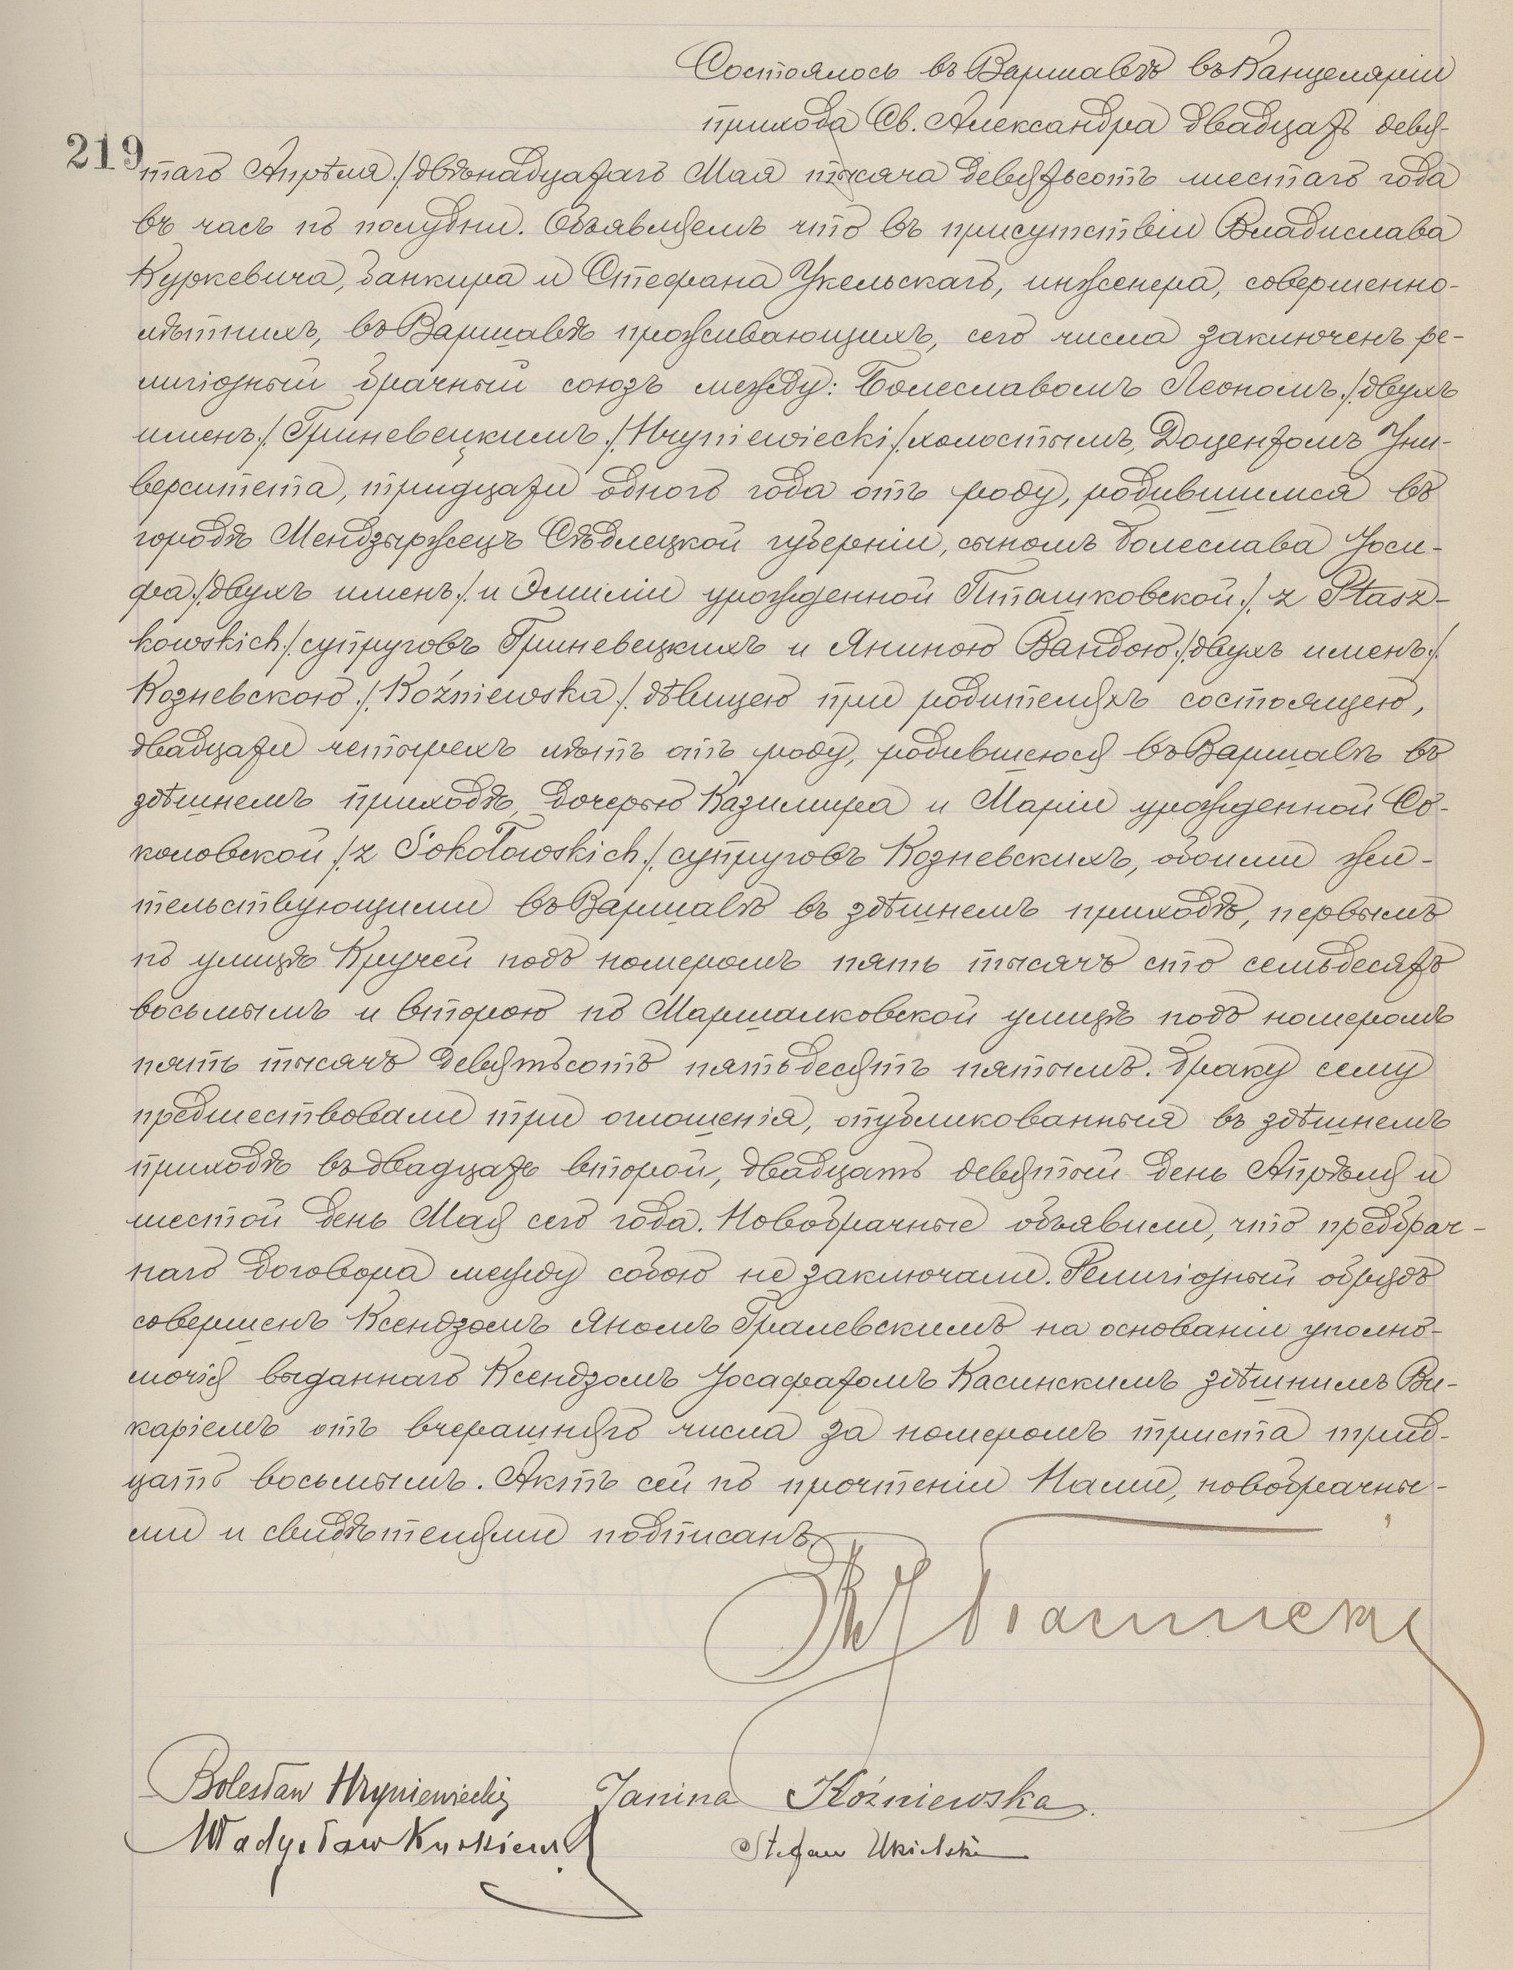 Состоялось въ Варшавѣ въ Канцеляріи
прихода Св. Александра двадцать девя-
219
таго Апрѣля /:двѣнадцатаго Мая тысяча девятьсотъ шестаго года
въ часъ по полудни. Объявляемъ что въ присутствіи Владислава
Куркевича, банкира и Стефана Укельскаго, инженера, совершенно-
лѣтнихъ, въ Варшавѣ проживающихъ, сего числа заключенъ ре-
лигіозный брачный союзъ между: Болеславомъ Леономъ /:двухъ
именъ:/ Гриневецкимъ /:Hryniewiecki:/ холостымъ, Доцентомъ Уни-
верситета, тридцати одного года отъ роду, родившимся въ
городѣ Мендзыржецъ Сѣдлецкой губерніи, сыномъ Болеслава Іоси-
фа /:двухъ именъ:/ и Эмиліи урожденной Пташковской /:z Ptasz-
kowskich:/ супруговъ Гриневецкихъ и Яниною Вандою /:двухъ именъ:/
Козневскою /:Koźniewska:/ дѣвицею при родителяхъ состоящею,
двадцати четырехъ лѣтъ отъ роду, родившеюся въ Варшавѣ въ
здѣшнемъ приходѣ, дочерью Казимира и Маріи урожденной Со-
коловской /:z Sokołowskich:/ супруговъ Козневскихъ, обоими жи-
тельствующими въ Варшавѣ въ здѣшнемъ приходѣ, первымъ
по улицѣ Кручей подъ номеромъ пять тысячъ сто семьдесятъ
восьмымъ и второю по Маршалковской улицѣ подъ номеромъ
пять тысячъ девятьсотъ пятьдесятъ пятымъ. Браку сему
предшествовали три оглошенія, опубликованныя въ здѣшнемъ
приходѣ въ двадцать второй, двадцать девятый день Апрѣля и
шестой день Мая сего года. Новобрачные объявили, что предбрач-
наго договора между собою не заключали. Религіозный обрядъ
совершенъ Ксендзомъ Яномъ Гралевскимъ на основаніи уполно-
мочія выданнаго Ксендзомъ Іосафатомъ Касинскимъ здѣшнимъ Ви-
каріемъ отъ вчерашняго числа за номеромъ триста трид-
цать восьмымъ. Актъ сей по прочтеніи Нами, новобрачны-
ми и свидѣтелями подписанъ.
Bolesław Hryniewiecki Janina Koźniewska.
Władysław Kurkiewicz Stefan Ukielski